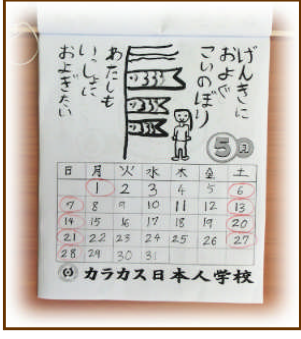 げんきに
およぐ
こいのぼり
あたしも
いっしょに
およぎたい
5月
日 月 火 水 木 金 土
1 2 3 4 5 6
7 8 9 10 11 12 13
14 15 16 17 18 19 20
21 22 23 24 25 26 27
28 29 30 31
カラカス日本人学校